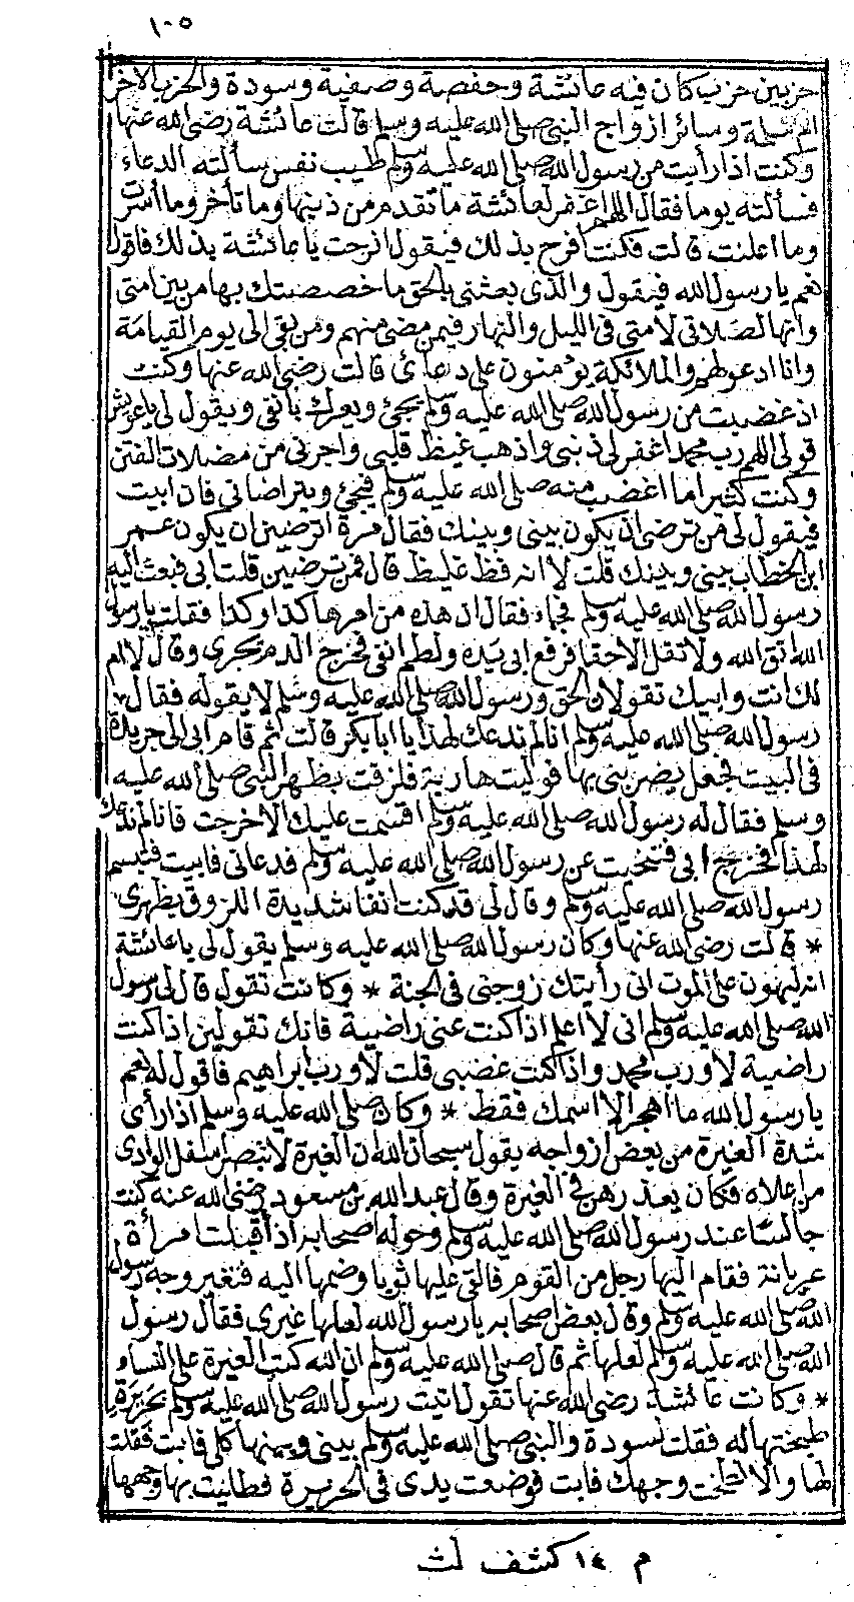 ١٠٥
حزبين حزب كان فيه عائشة وحفصة وصفية وسودة والحزب الآخر
ام سلمة وسائر ازواج النبي صلى الله عليه وسلم قالت عائشة رضي الله عنها
وكنت اذا رأيت من رسول الله صلى الله عليه وسلم طيب نفس سألته الدعاء
فسألته يوما فقال اللهم اغفر لعائشة ما تقدم من ذنبها وما تأخر وما أسرت
وما اعلنت قالت فكنت افرح بذلك فيقول افرحت يا عائشة بذلك فاقول
نعم يا رسول الله فيقول والذي بعثني بالحق ما خصصتك بها من بين امتي
وانها لصلاتي لأمتي في الليل والنهار فيمن مضى منهم ومن بقي الى يوم القيامة
وانا ادعو لهم والملائكة يؤمنون على دعائي قالت رضي الله عنها وكنت
اذ غضبت من رسول الله صلى الله عليه وسلم يجيئ ويعرك بانفي ويقول لي يا عويش
قولي اللهم رب محمد اغفر لي ذنبي واذهب غيظ قلبي واجرني من مضلات الفتن
وكنت كثيرا ما اغضب منه صلى الله عليه وسلم فيجيئ ويتراضاني فان ابيت
فيقول لي من ترضي ان يكون بيني وبينك فقال مرة اترضين ان يكون عمر
ابن الخطاب بيني وبينك قلت لا انه فظ غليظ قال فمن ترضين قلت ابي فبعث اليه
رسول الله صلى الله عليه وسلم فجاء فقال ان هذه من امرها كذا وكذا فقلت يا رسول
الله اتق الله ولا تقل الا حقا فرفع ابي يده ولطم انفي فخرج الدم يجري وقال لا ام
لك انت وابيك تقولان الحق ورسول الله صلى الله عليه وسلم لا يقوله فقال
رسول الله صلى الله عليه وسلم انا لم ندعك لهذا يا ابا بكر قالت ثم قام ابي الى جريدة
في البيت فجعل يضربني بها فوليت هاربة فلزقت بظهر النبي صلى الله عليه
وسلم فقال له رسول الله صلى الله عليه وسلم اقسمت عليك الا خرجت فانا لم ندعك
لهذا فخرج ابي فتنحيت عن رسول الله صلى الله عليه وسلم فدعاني فابيت فتبسم
رسول الله صلى الله عليه وسلم وقال لي قد كنت انفا شديدة اللزوق بظهري
* قالت رضي الله عنها وكان رسول الله صلى الله عليه وسلم يقول لي يا عائشة
انه ليهون علي الموت اني رأيتك زوجتي في الجنة * وكانت تقول قال لي رسول
الله صلى الله عليه وسلم اني لأعلم اذا كنت عني راضية فانك تقولين اذا كنت
راضية لا ورب محمد واذا كنت غضبى قلت لا ورب ابراهيم فاقول له نعم
يا رسول الله ما اهجر الا اسمك فقط * وكان صلى الله عليه وسلم اذا رأى
شدة الغيرة من بعض ازواجه يقول سبحان الله ان الغيرة لا تبصر اسفل الوادي
من اعلاه فكان يعذرهن في الغيرة وقال عبد الله بن مسعود رضي الله عنه كنت
جالسا عند رسول الله صلى الله عليه وسلم وحوله اصحابه اذ أقبلت امرأة
عريانة فقام اليها رجل من القوم فالقى عليها ثوبا وضمها اليه فتغير وجه رسول
الله صلى الله عليه وسلم وقال بعض اصحابه يا رسول الله لعلها غيرى فقال رسول
الله صلى الله عليه وسلم لعلها ثم قال صلى الله عليه وسلم ان الله كتب الغيرة على النساء
* وكانت عائشة رضي الله عنها تقول اتيت رسول الله صلى الله عليه وسلم بخزيرة
طبختها له فقلت لسودة والنبي صلى الله عليه وسلم بيني وبينها كلي فابت فقلت
لها والا لطخت وجهك فابت فوضعت يدي في الخزيرة فطليت بها وجهها
م ١٤ كشف لث